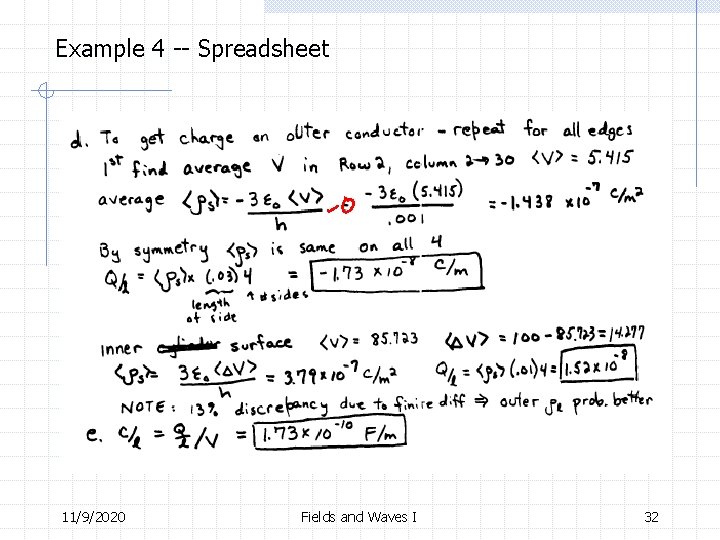 Example 4 -- Spreadsheet
d. To get charge on outer conductor - repeat for all edges
1st find average V in Row 2, column 2→30 <V> = 5.415
average <ρs> = -3ε₀<V>/h = -3ε₀(5.415)/.001 = -1.438 x10⁻⁷ C/m²
By symmetry <ρs> is same on all 4
Q/l = <ρs> x (.03)4 = -1.73 x10⁻⁸ C/m
length of side ↑ # sides
inner surface <V> = 85.723 <ΔV> = 100 - 85.723 = 14.277
<ρs> = 3ε₀<ΔV>/h = 3.79x10⁻⁷ C/m² Q/l = <ρs>(.01)4 = 1.52x10⁻⁸
NOTE: 13% discrepancy due to finite diff ⇒ outer ρl prob. better
e. C/l = Q/l/V = 1.73 x 10⁻¹⁰ F/m
11/9/2020 Fields and Waves I 32